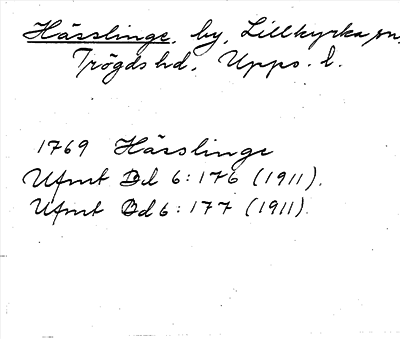 Hässlinge, by, Lillkyrka sn,
Trögds hd, Upps. l.
1769 Hässlinge
Ufmt Dd 6:176 (1911).
Ufmt Dd 6:177 (1911).